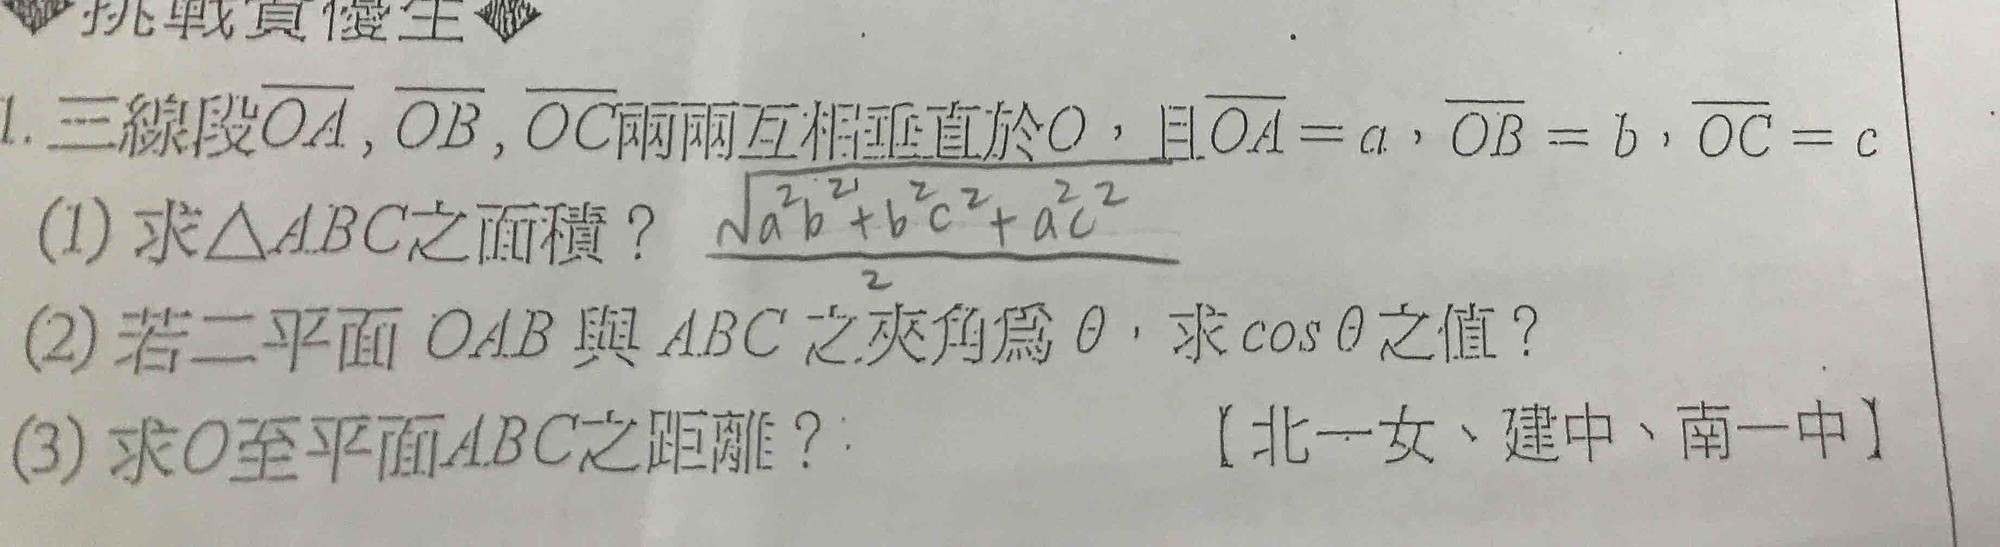 ◆挑戰資優生◆
1. 三線段OA, OB, OC兩兩互相垂直於O，且OA = a，OB = b，OC = c
(1) 求△ABC之面積？ √(a²b² + b²c² + a²c²) / 2
(2) 若二平面 OAB 與 ABC 之夾角為 θ，求 cos θ 之值？
(3) 求O至平面ABC之距離？ 【北一女、建中、南一中】